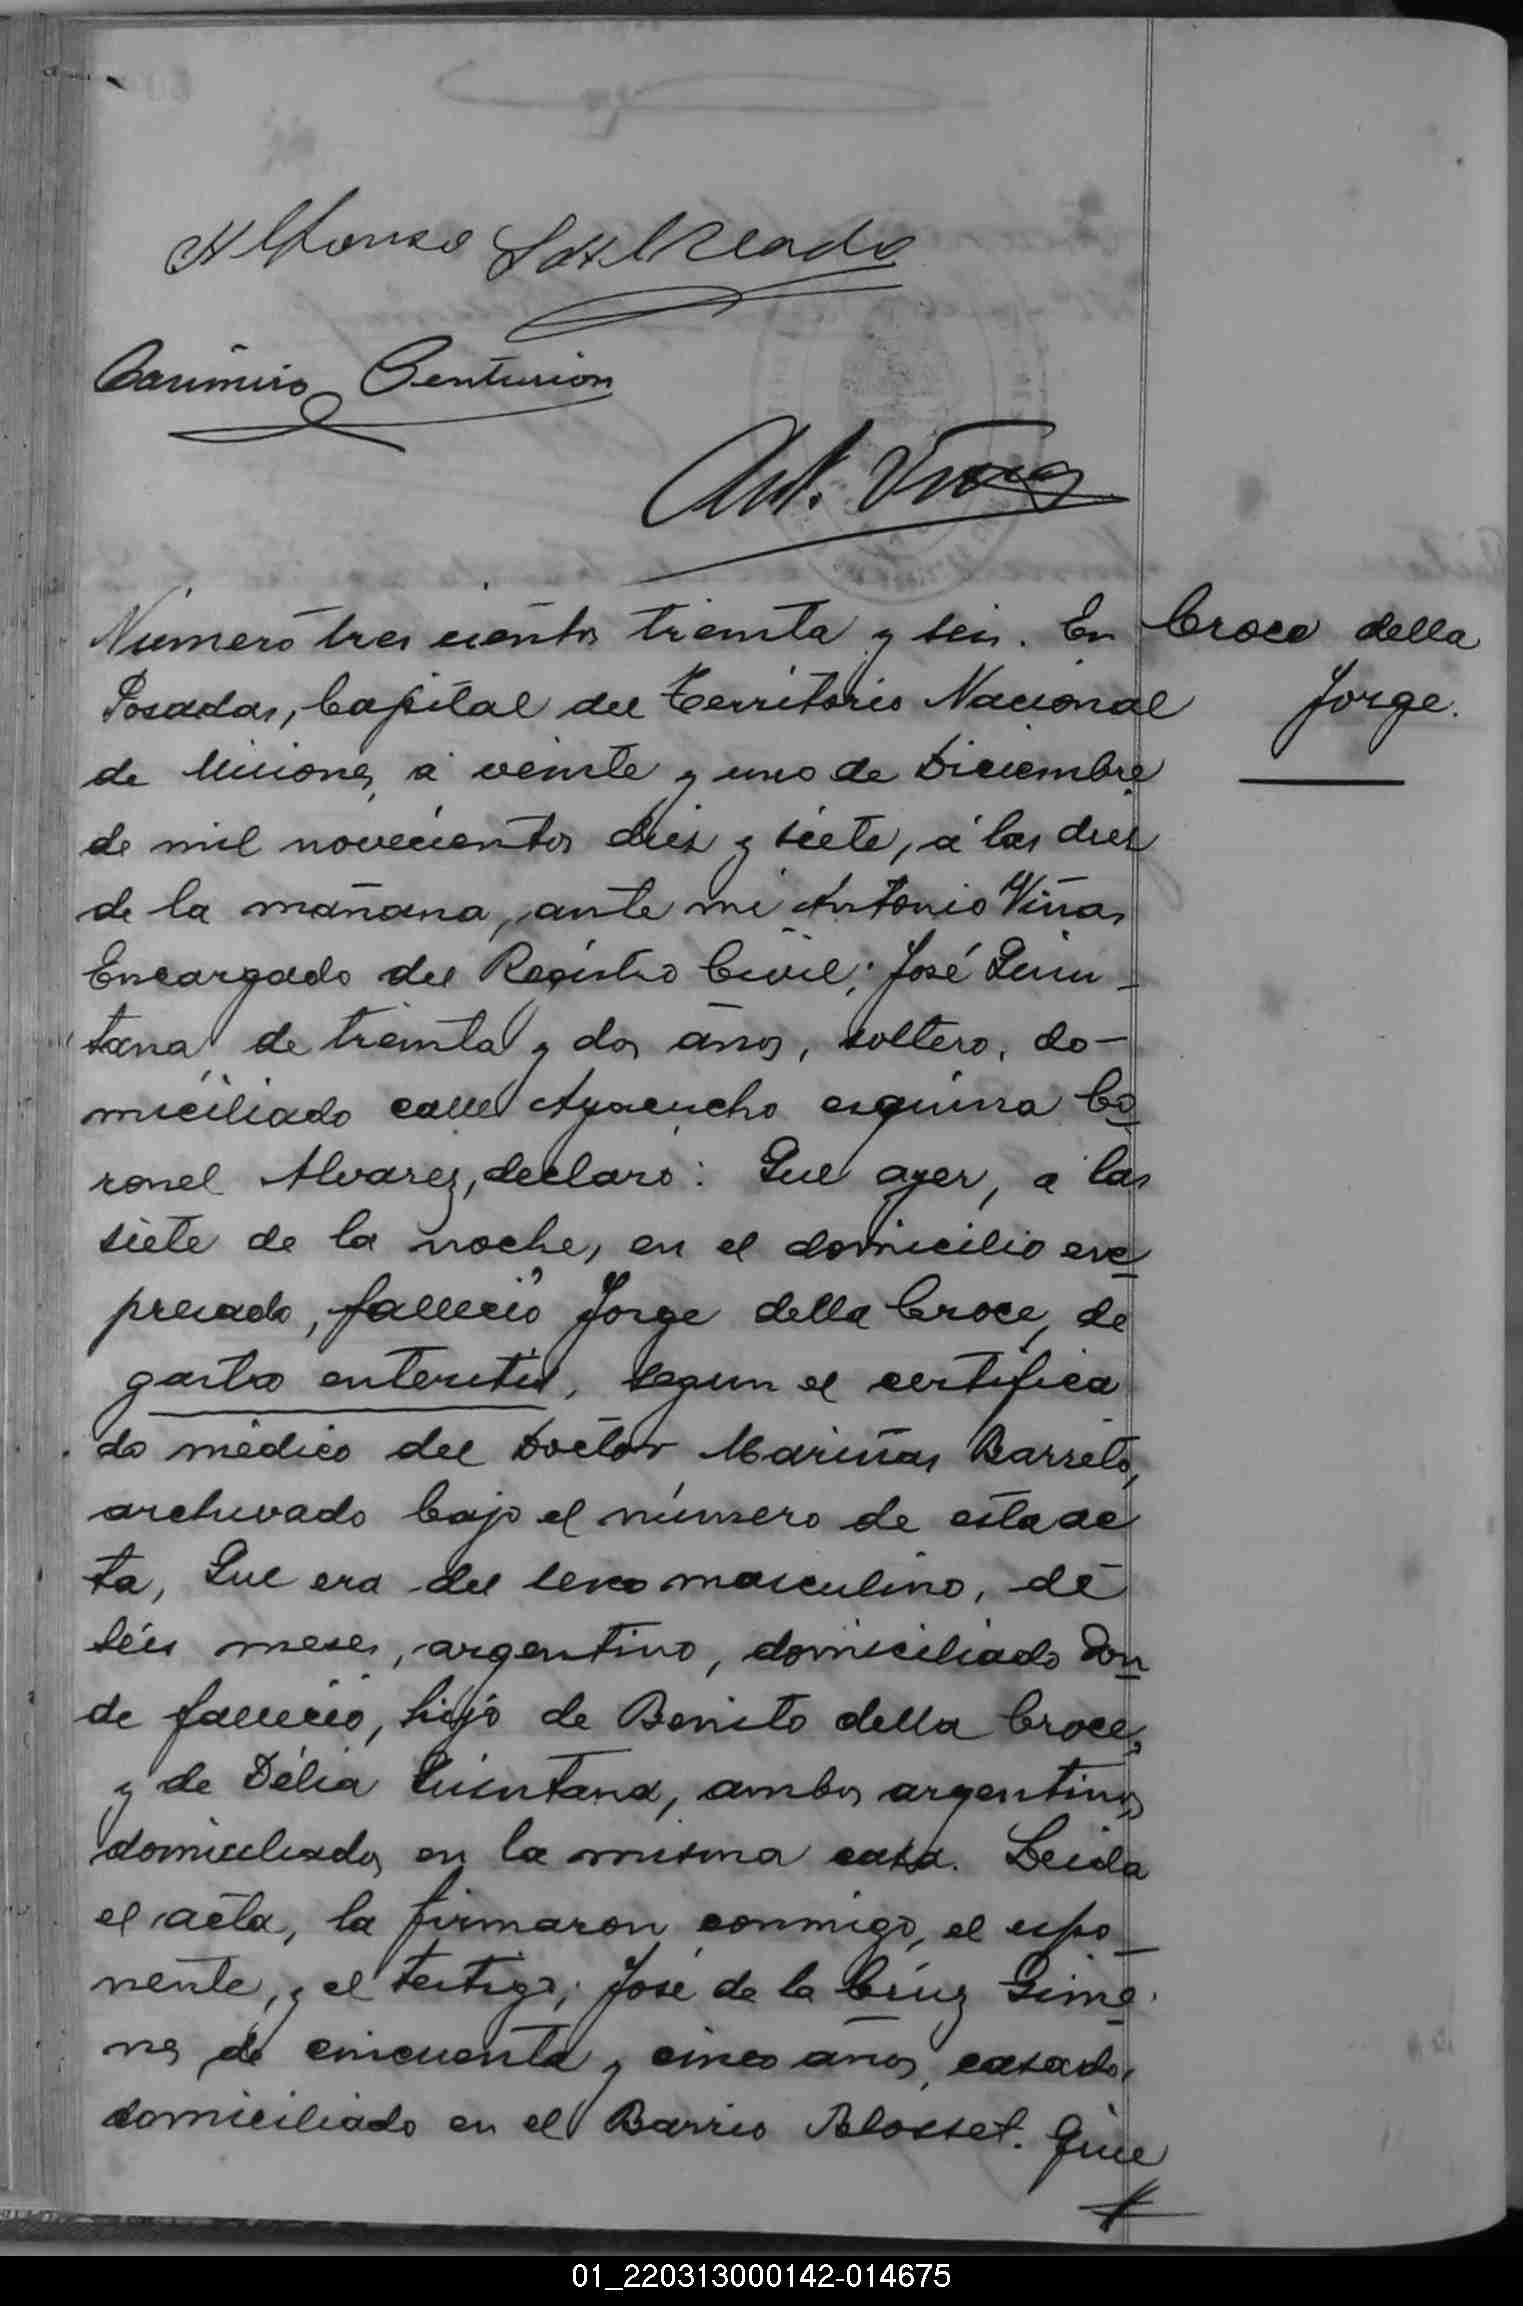 Alfonso
Casimiro Centurion
Ant. Viñas
Número tres cientos treinta y seis. En
Croce della
Jorge.
Posadas, Capital del Territorio Nacional
de Misiones, á veinte y uno de Diciembre
de mil novecientos diez y siete, á las diez
de la mañana, ante mi Antonio Viñas
Encargado del Registro Civil; José Quin-
tana de treinta y dos años, soltero, do-
miciliado calle Ayacucho esquina Co-
ronel Alvarez, declaró: Que ayer, a las
siete de la noche, en el domicilio ex-
presado, falleció Jorge della Croce, de
gastro enteritis, segun el certifica
do médico del Doctor Mariñas Barreto,
archivado bajo el número de esta ac
ta, Que era del sexo masculino, de
séis meses, argentino, domiciliado don-
de falleció, hijo de Benito della Croce,
y de Délia Quintana, ambos argentinos
domiciliados en la misma casa. Leida
el acta, la firmaron conmigo, el expo-
nente, y el testigo; José de la Cruz Gime-
nes de cincuenta y cinco años, casado,
domiciliado en el Barrio Blosset. Que
01_220313000142-014675